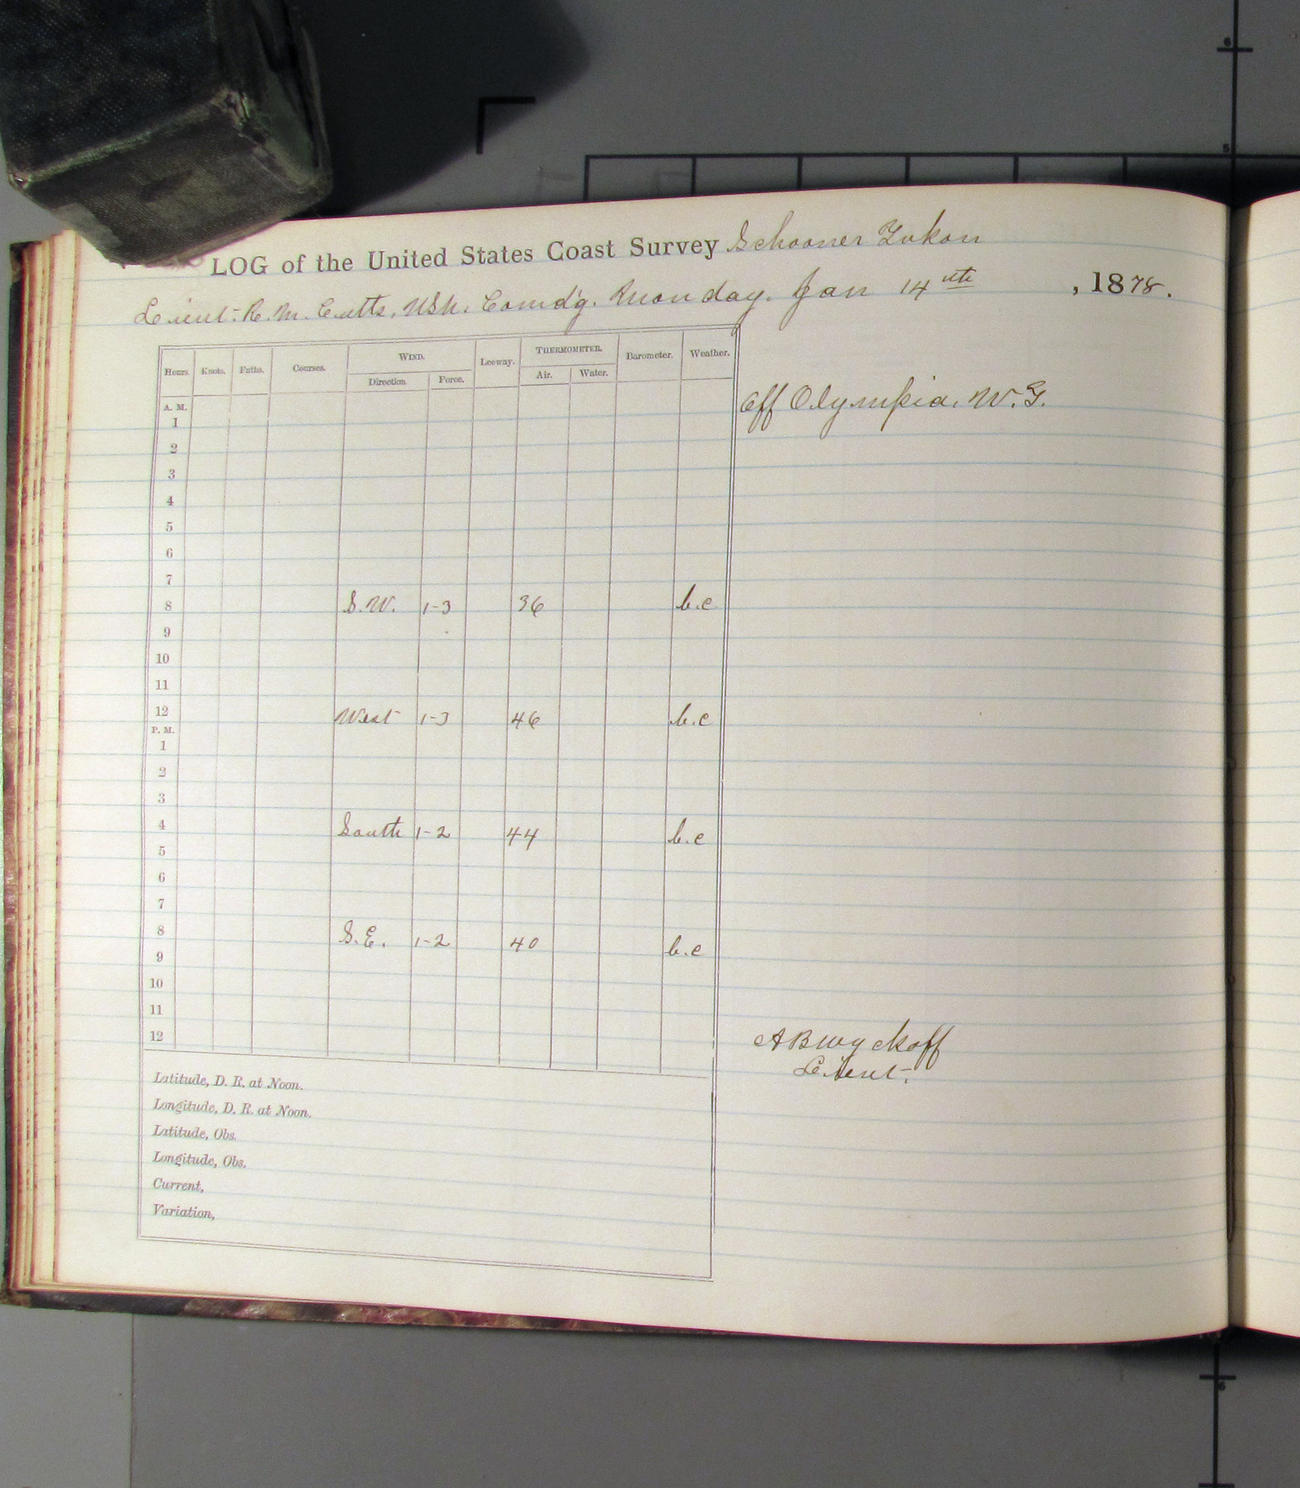 LOG of the United States Coast Survey Schooner Yukon
Lieut. R. M. Cutts, USN. Comd'g. Monday. Jan 14th, 1878.
Hours. Knots. Faths. Courses. WIND. Leeway. THERMOMETER. Barometer. Weather.
Direction. Force. Air. Water.
A. M.
Off Olympia, W.T.
1
2
3
4
5
6
7
8 S.W. 1-3 36 b.c
9
10
11
12 West 1-3 46 b.c
P. M.
1
2
3
4 South 1-2 44 b.c
5
6
7
8 S.E. 1-2 40 b.c
9
10
11
12
A B Wyckoff
Lieut.
Latitude, D. R. at Noon.
Longitude, D. R. at Noon.
Latitude, Obs.
Longitude, Obs.
Current,
Variation,
6
5
6